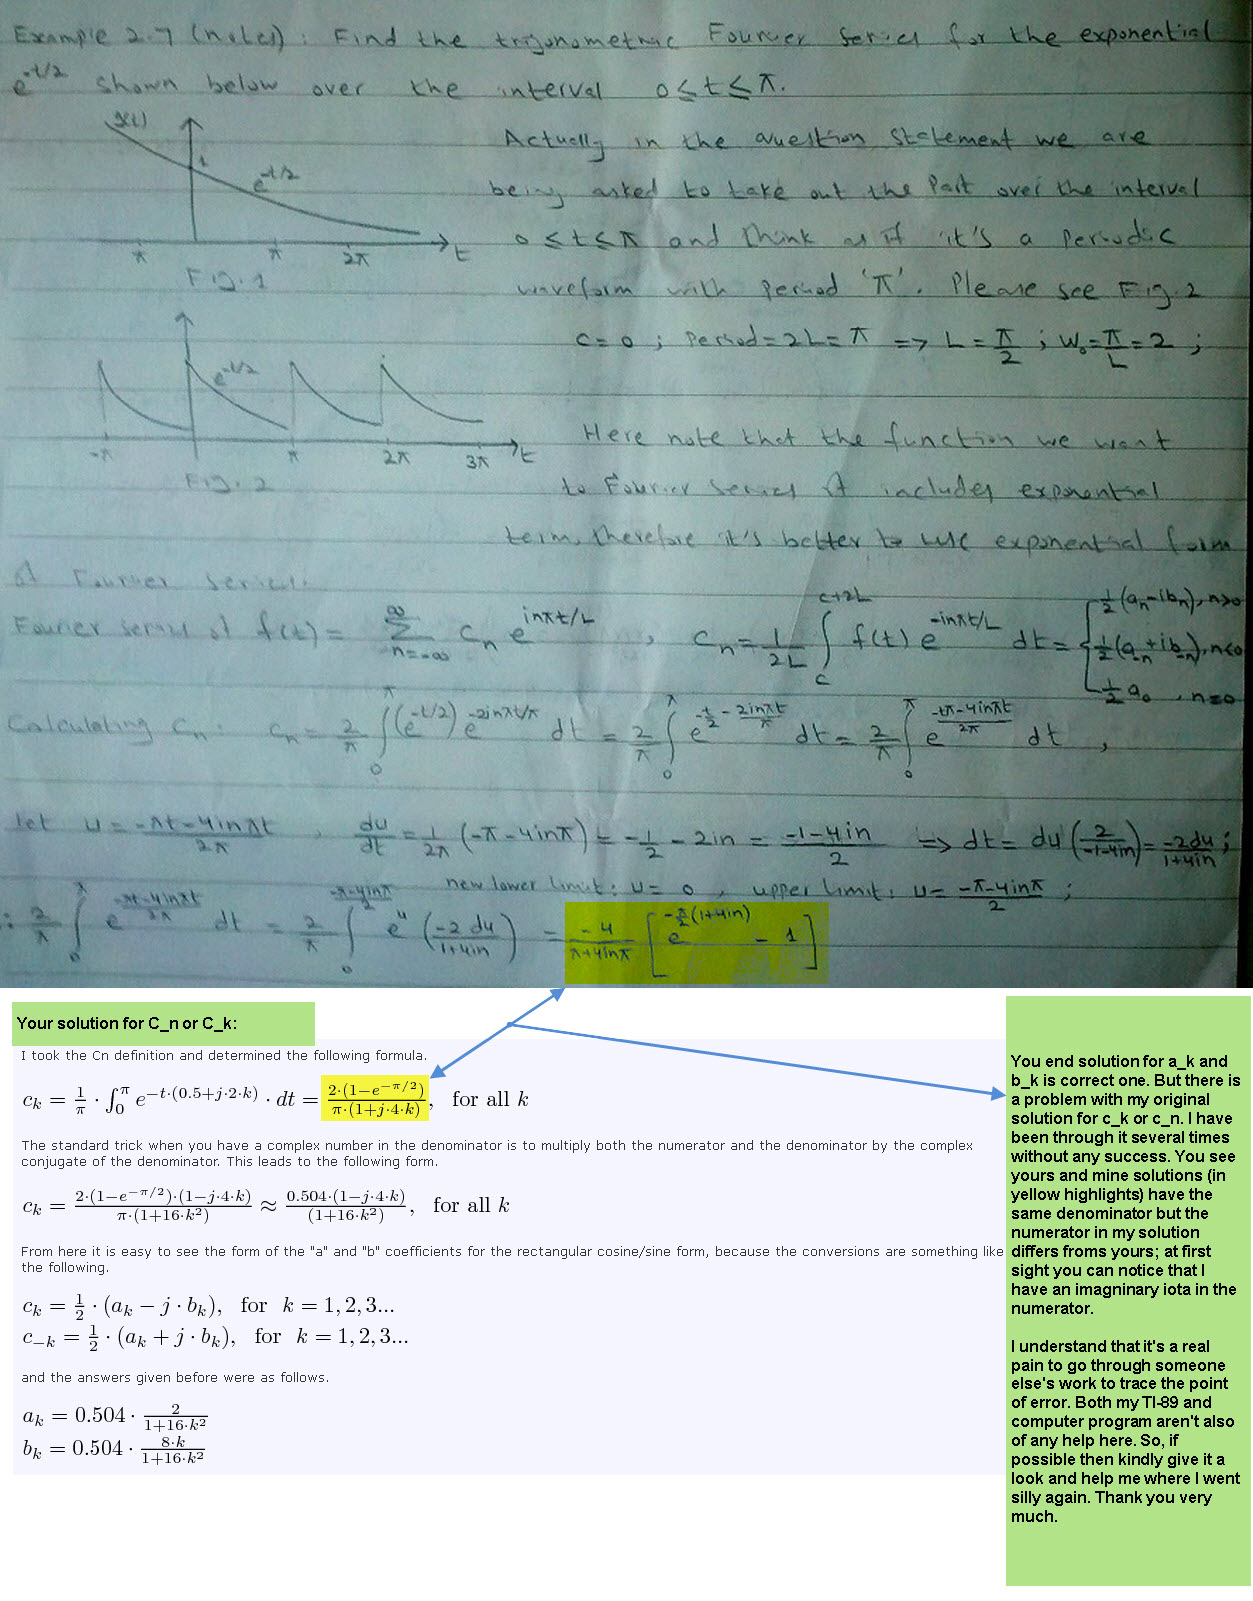 Example 2.7 (notes): Find the trigonometric Fourier series for the exponential
e^{-t/2} shown below over the interval 0 ≤ t ≤ π.
x(t)
1
e^{-t/2}
π π 2π t
Fig. 1
Actually in the question statement we are
being asked to take out the part over the interval
0 ≤ t ≤ π and think as if it's a periodic
waveform with period 'π'. Please see Fig. 2
c = 0 ; Period = 2L = π => L = π/2 ; W₀ = π/L = 2 ;
e^{-t/2}
-π π 2π 3π t
Fig. 2
Here note that the function we want
to Fourier series it includes exponential
term, therefore it's better to use exponential form
of Fourier series.
Fourier series of f(t) = ∑_{n=-∞}^{∞} c_n e^{inπt/L} , c_n = 1/2L ∫_c^{c+2L} f(t) e^{-inπt/L} dt = { ½(a_n - ib_n), n>0
½(a_{-n} + ib_{-n}), n<0
½ a₀ , n=0
Calculating C_n: c_n = 2/π ∫_0^π (e^{-t/2}) e^{-2inπt/π} dt = 2/π ∫_0^π e^{-t/2 - 2inπt/π} dt = 2/π ∫_0^π e^{(-tπ-4inπt)/2π} dt ,
let u = (-πt-4inπt)/2π , du/dt = 1/2π (-π-4inπ) = -1/2 - 2in = (-1-4in)/2 => dt = du (2/(-1-4in)) = -2du/(1+4in) ;
new lower limit: u = 0 , upper limit: u = (-π-4inπ)/2 ;
: 2/π ∫_0^π e^{(-πt-4inπt)/2π} dt = 2/π ∫_0^{(-π-4inπ)/2} e^u (-2 du/(1+4in)) = -4/(π+4inπ) [e^{-π/2(1+4in)} - 1]
Your solution for C_n or C_k:
I took the Cn definition and determined the following formula.
c_k = 1/π · ∫_0^π e^{-t·(0.5+j·2·k)} · dt = 2·(1-e^{-π/2})/π·(1+j·4·k), for all k
The standard trick when you have a complex number in the denominator is to multiply both the numerator and the denominator by the complex
conjugate of the denominator. This leads to the following form.
c_k = 2·(1-e^{-π/2})·(1-j·4·k)/π·(1+16·k²) ≈ 0.504·(1-j·4·k)/(1+16·k²), for all k
From here it is easy to see the form of the "a" and "b" coefficients for the rectangular cosine/sine form, because the conversions are something like
the following.
c_k = 1/2 · (a_k - j · b_k), for k = 1, 2, 3...
c_{-k} = 1/2 · (a_k + j · b_k), for k = 1, 2, 3...
and the answers given before were as follows.
a_k = 0.504 · 2/1+16·k²
b_k = 0.504 · 8·k/1+16·k²
You end solution for a_k and
b_k is correct one. But there is
a problem with my original
solution for c_k or c_n. I have
been through it several times
without any success. You see
yours and mine solutions (in
yellow highlights) have the
same denominator but the
numerator in my solution
differs froms yours; at first
sight you can notice that I
have an imagninary iota in the
numerator.
I understand that it's a real
pain to go through someone
else's work to trace the point
of error. Both my TI-89 and
computer program aren't also
of any help here. So, if
possible then kindly give it a
look and help me where I went
silly again. Thank you very
much.